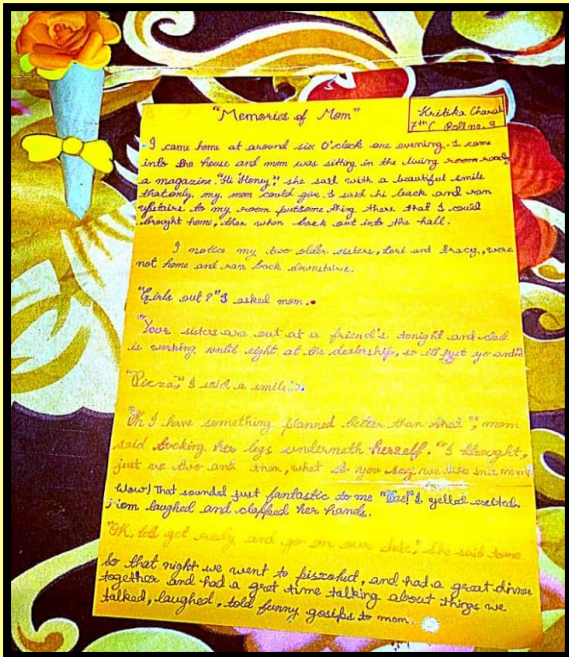 "Memories of Mom"
Kritika Charak
7th C Roll no. 3
I came home at around six O'clock one evening. I came
into the house and mom was sitting in the living room ready
a magazine. "Hi Honey," she said with a beautiful smile
that only, my mom could give. I said hi back and ran
upstairs to my room some thing there that I could
brought home, then when back out into the hall.
I notice my two older sisters, Lori and Tracy, were
not home and ran back downstairs.
"Girls out?" I asked mom.
"Your sisters are out at a friend's tonight and dad
is working until eight at the dealership, so it'll just yo and
"Pizza," I said a smile
"Oh I have something planned better than that", mom
said tocking her legs underneath herself. "I thought,
just us two and then, what you say, we
Wow! That sounded just fantastic to me "Yes!" I yelled excited.
mom laughed and clapped her hands.
"Ok, lets get ready and go on our date," she said tome
So that night we went to pizzahut, and had a great dinner
together and had a gret time talking about things we
talked, laughed, told funny gossips to mom.